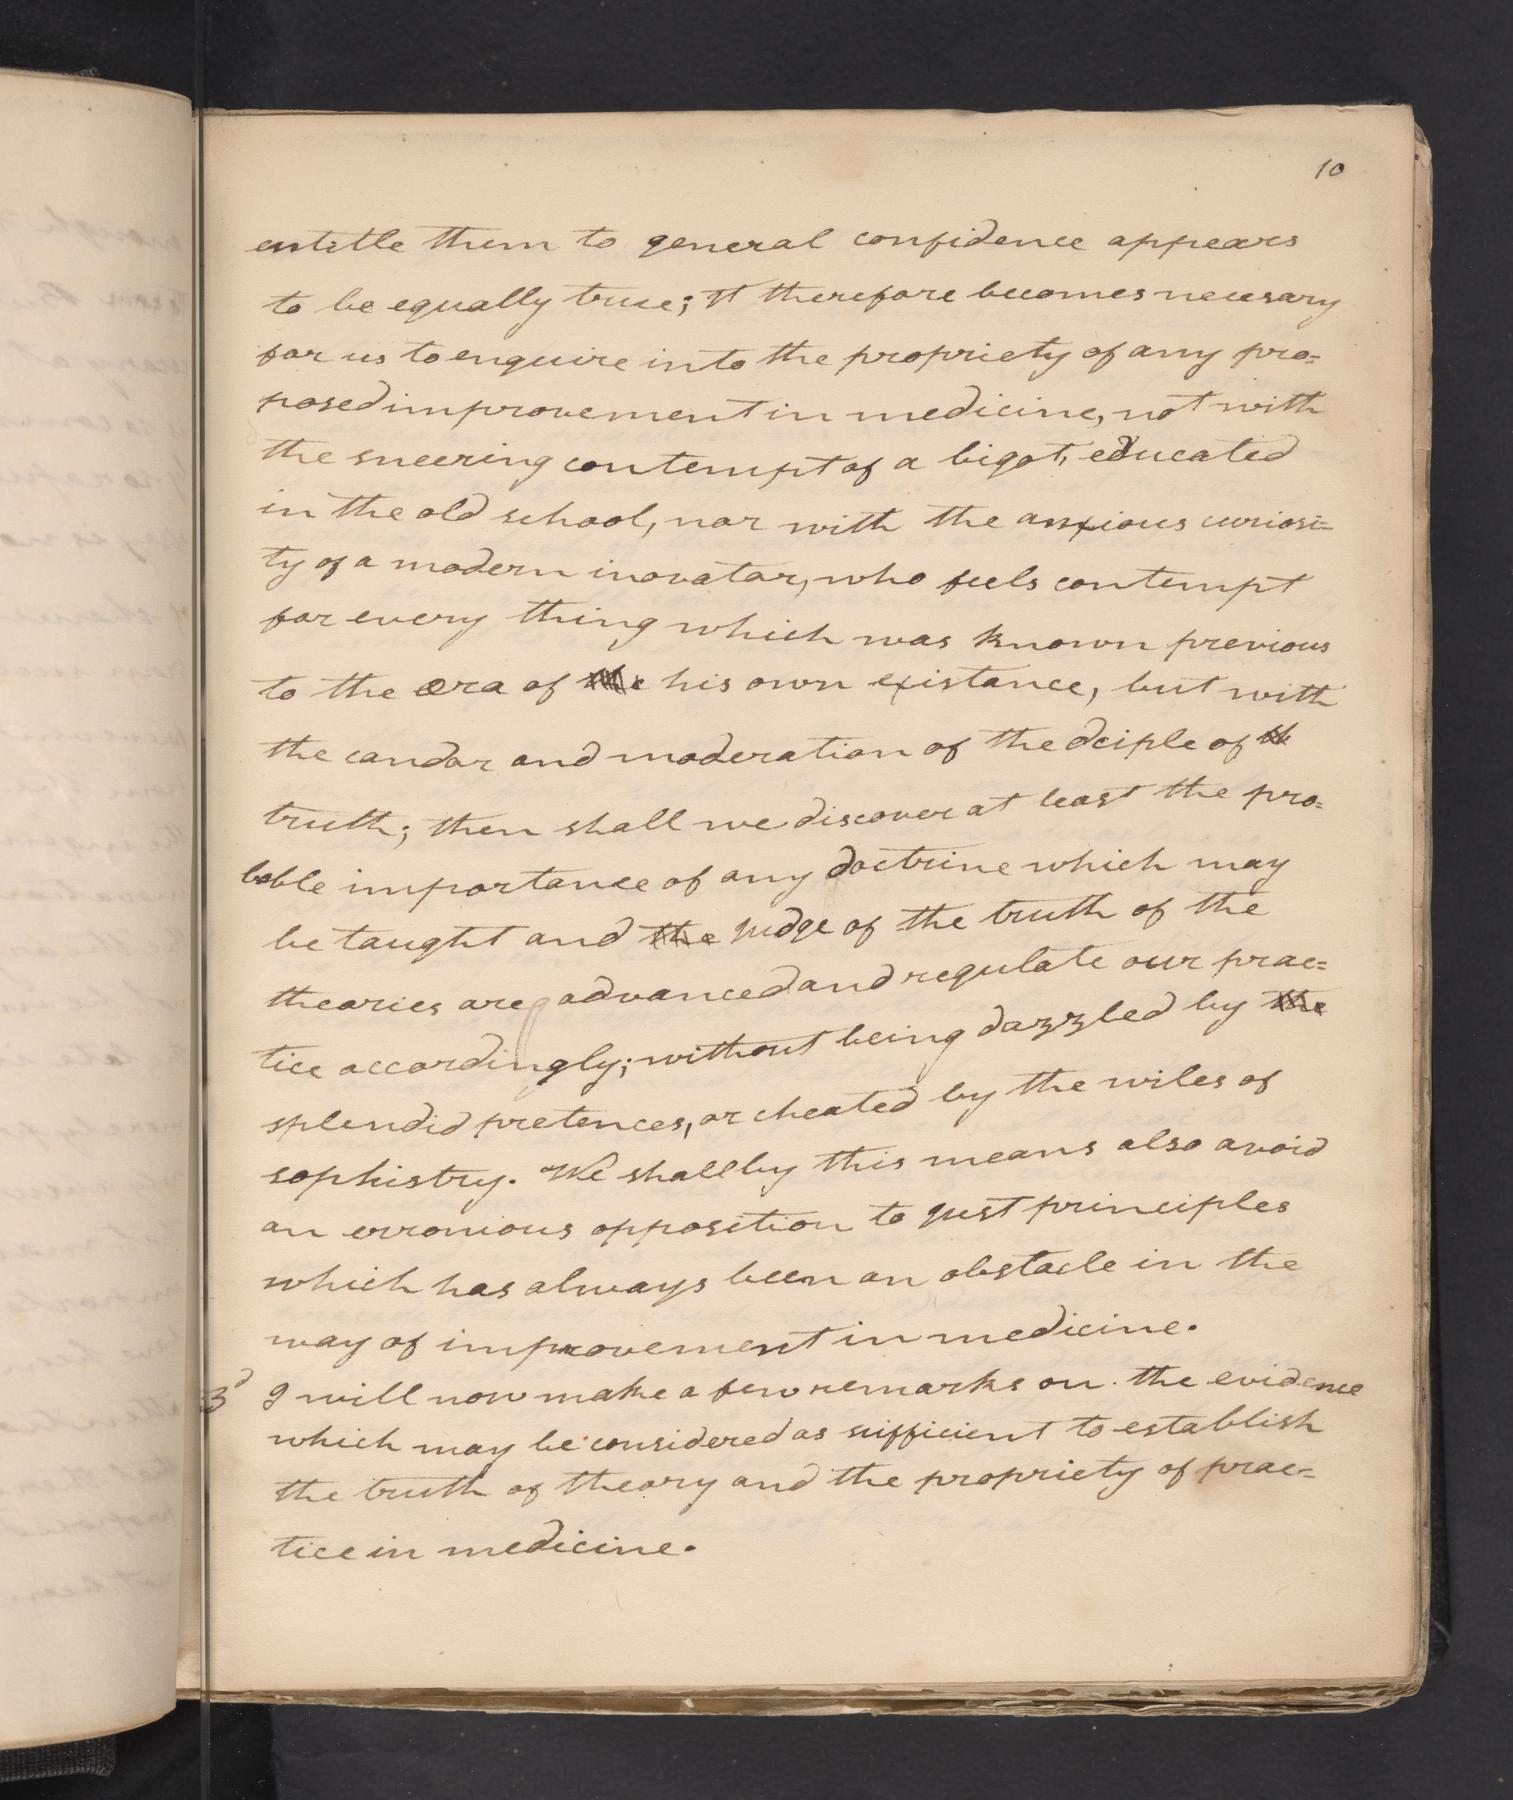 10
entitle them to general confidence appears
to be equally true; It therefore becomes necessary
for us to enquire into the propriety of any pro=
posed improvement in medicine, not with
the sneering contempt of a bigot, educated
in the old school, nor with the anxious curiosi=
ty of a modern inovator, who feels contempt
for every thing which was known previous
to the æra of the his own existance, but with
the candor and moderation of the dciple of th
truth; then shall we discover at least the pro=
bable importance of any doctrine which may
be taught and the judge of the truth of the
theories are advanced and regulate our prac=
tice accordingly; without being dazzled by the
splendid pretences, or cheated by the wiles of
sophistry. We shall by this means also avoid
an erronious opposition to just principles
which has always been an obstacle in the
way of improvement in medicine.
3d I will now make a few remarks on the evidence
which may be considered as sufficient to establish
the truth of theory and the propriety of prac=
tice in medicine.